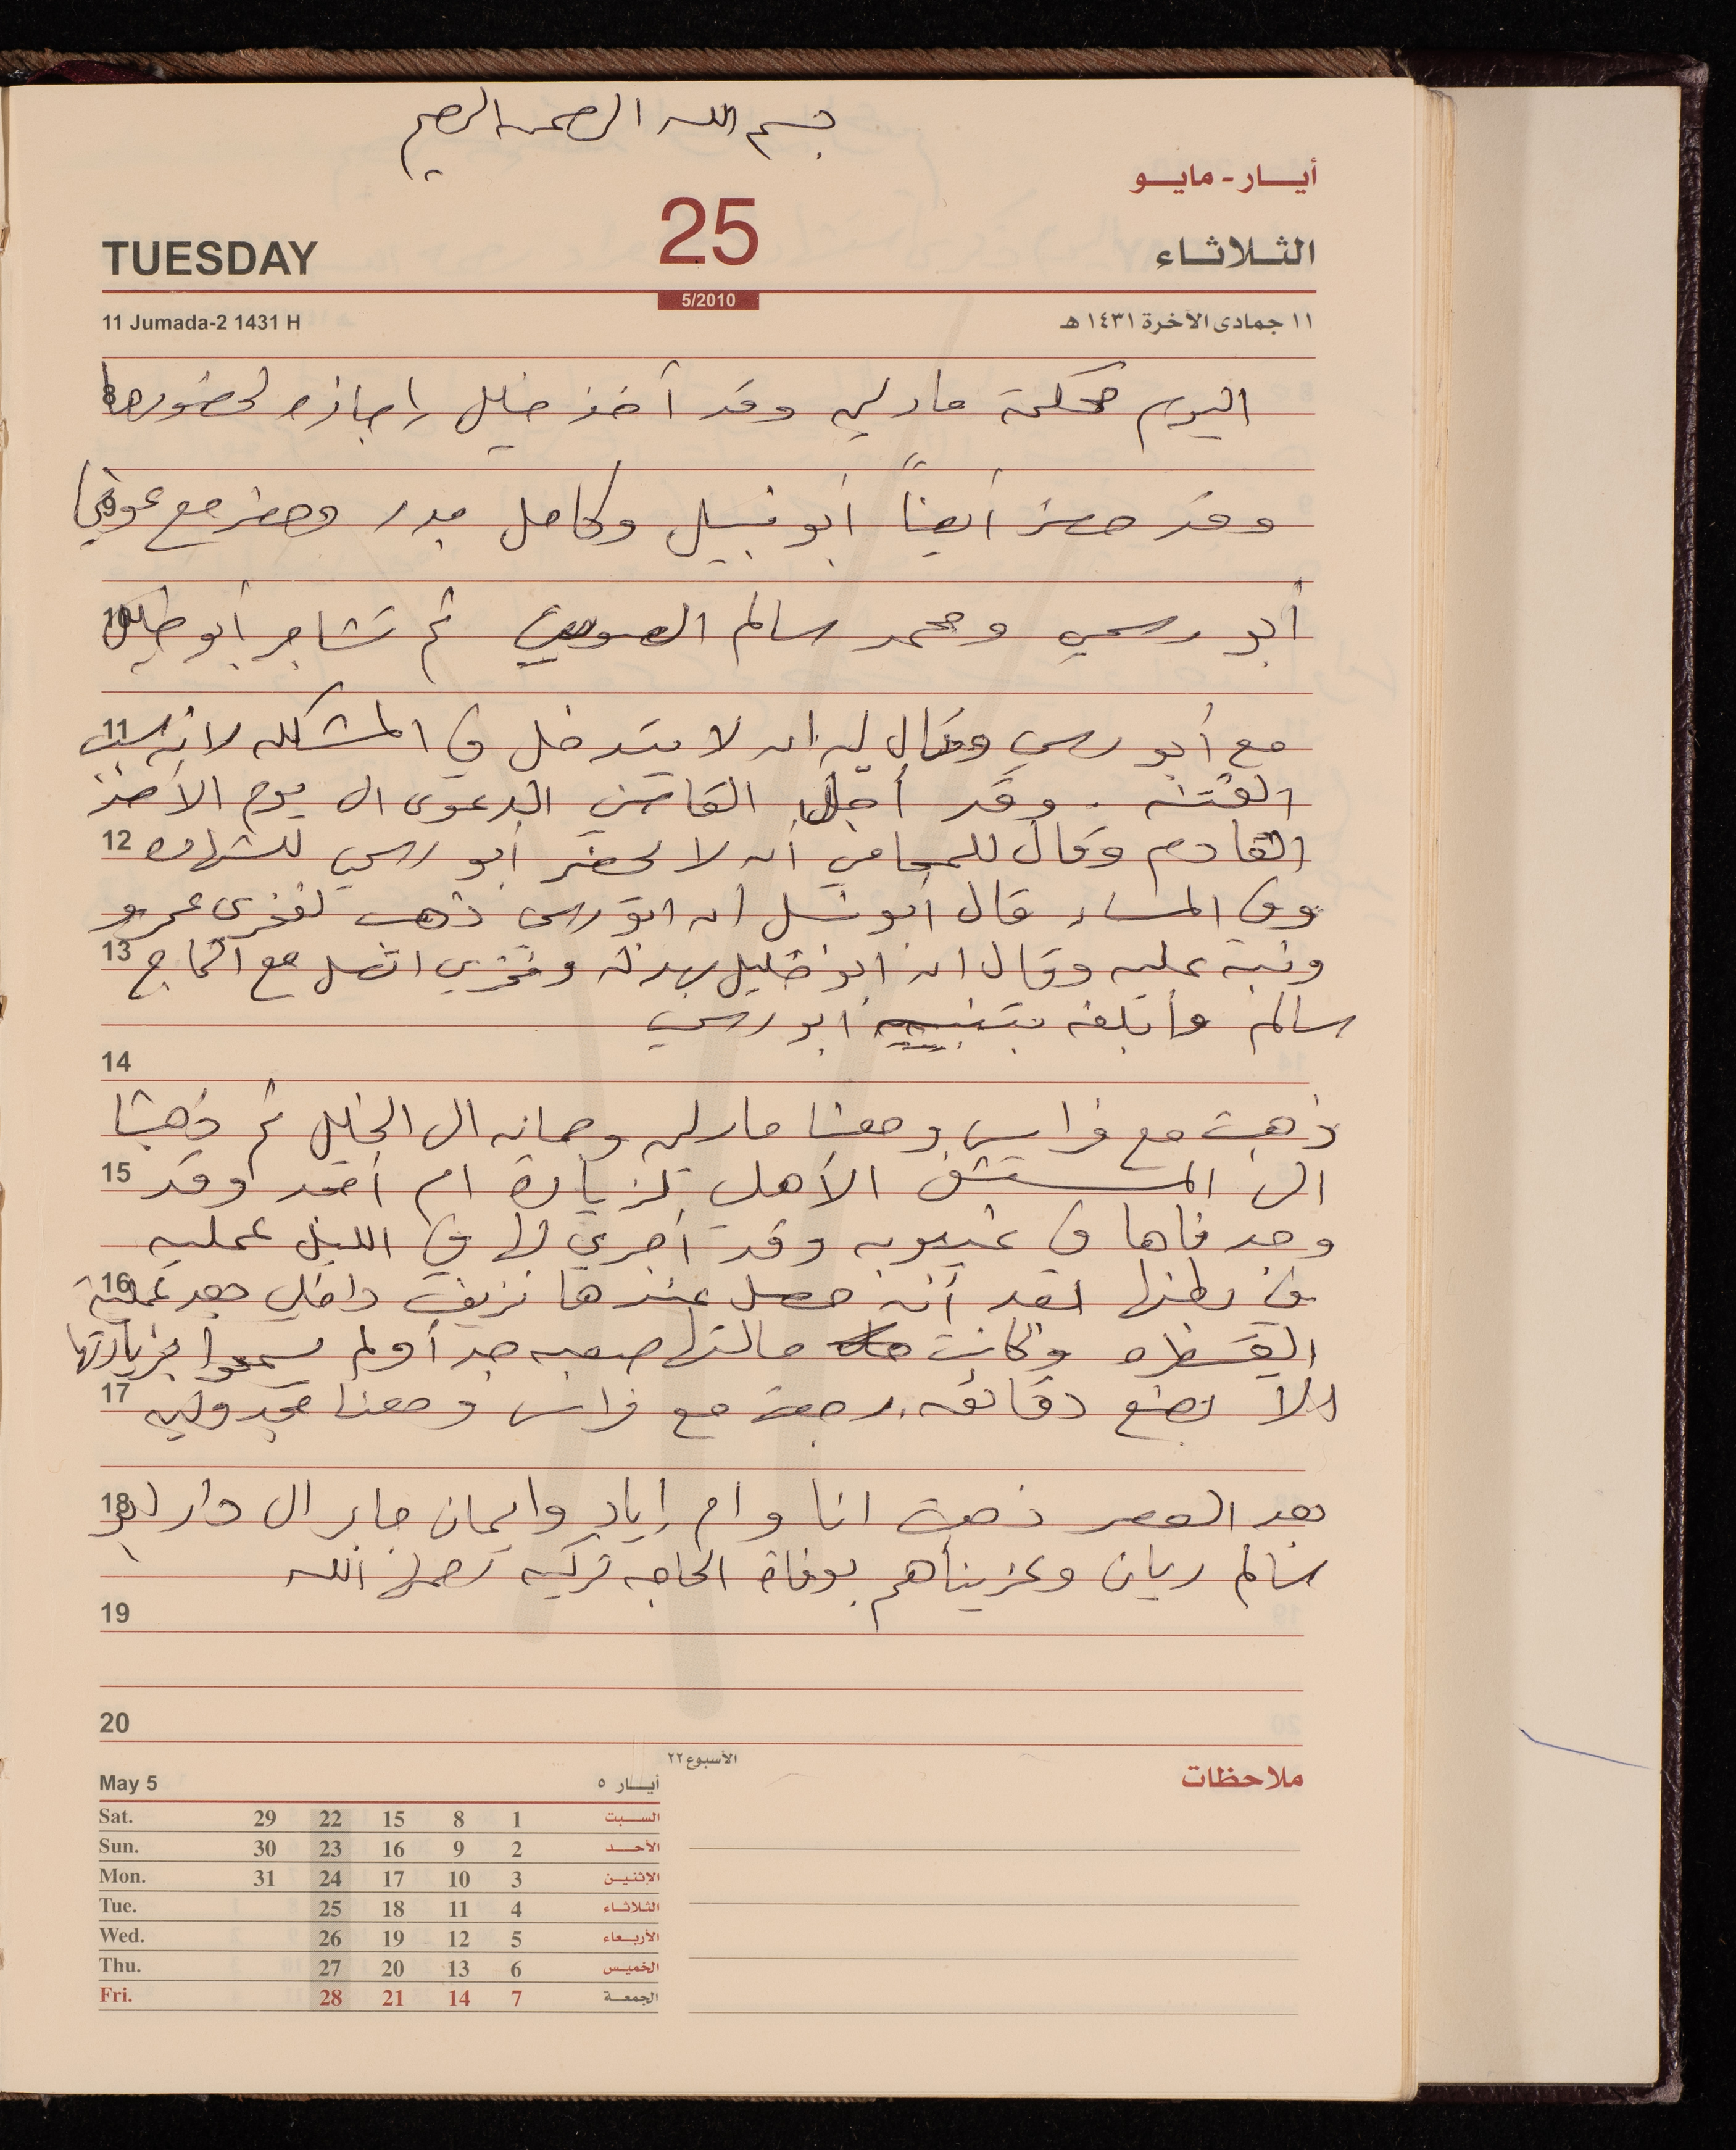 بسم الله الرحمن الرحيم
أيــار - مايــو
TUESDAY 25 الثـلاثـاء
5/2010
11 Jumada-2 1431 H ١١ جمادى الآخرة ١٤٣١ هـ
8 اليوم محكمة مادلين وقد أخذ خليل إجازه لحضورها
9 وقد حضر أيضاً أبو نبيل وكامل بدر وحضر مع عوني
10 أبو رسمي ومحمد سالم ثم تشاجر أبو خليل
11 مع أبو رسمي وقال له ان لا يتدخل في المشكله لانه سبب
الفتنه . وقد أجل القاضي الدعوى الى يوم الأحد
12 القادم وقال للمحامي أن لا يحضر أبو رسمي للشهاده
وفي المساء قال أبو نبيل ان ابو رسمي ذهب لفخري عمرو
13 ونبه عليه وقال ان ابو خليل بهدله وفخري اتصل مع الحاج
سالم وأبلغه بتنبيه ابو رسمي
14
ذهبت مع فراس ومعنا مادلين وجمانه الى الخليل ثم ذهبنا
15 الى المستشفى الأهلي لزيارة ام أحمد وقد
وجدناها في غيبوبه وقد أجري لها في الليل عمليه
16 في بطنها بعد أنه حصل عندها نزيف داخلي بعد عملية
القسطره وكانت حالتها صعبه جداً ولم يسمحوا بزيارتها
17 الا بضع دقائق. رجعت مع فراس ومعنا مجدولين
18 بعد العصر ذهبت انا وام إياد وايمان جابر الى دار ابو
سالم ريان وعزيناهم بوفاة الحاجه تركيه رحمها الله
19
20
ملاحظات
الأسبوع ٢٢
May 5 أيــار ٥
Sat. 29 22 15 8 1 السـبت
Sun. 30 23 16 9 2 الأحـد
Mon. 31 24 17 10 3 الإثنيـن
Tue. 25 18 11 4 الثـلاثاء
Wed. 26 19 12 5 الأربـعاء
Thu. 27 20 13 6 الخميـس
Fri. 28 21 14 7 الجمعـة